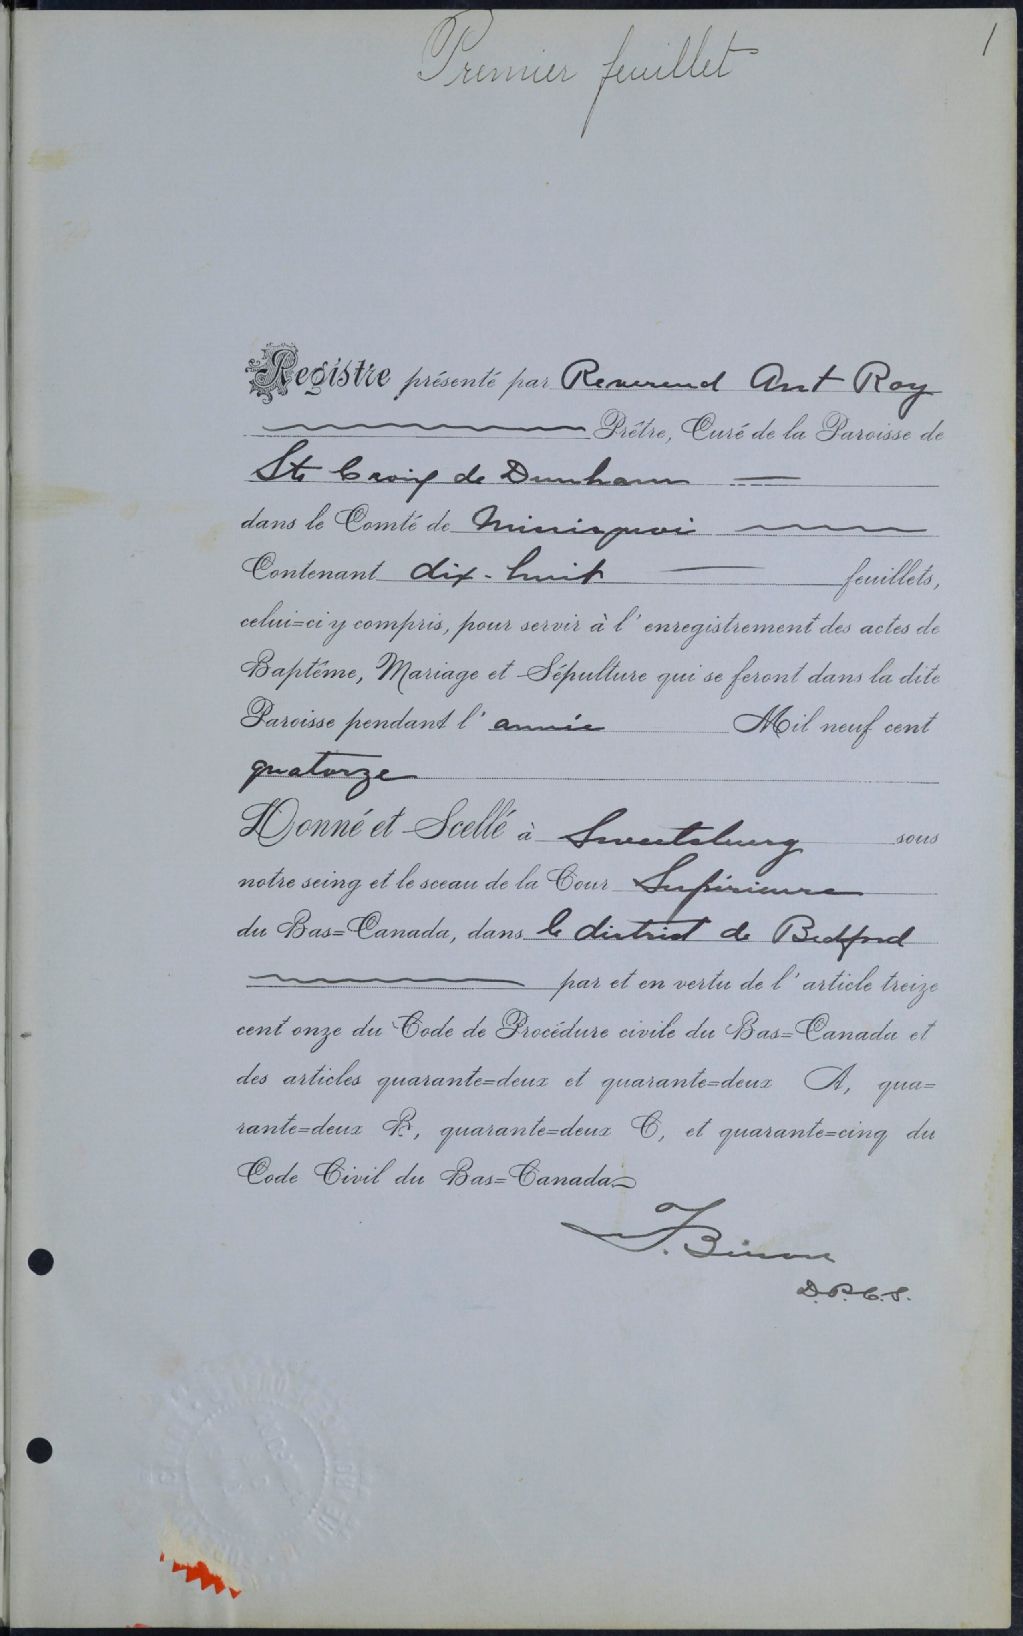 Premier feuillet
1
Registre présenté par Reverend Ant Roy
Prêtre, Curé de la Paroisse de
Ste Croix de Dunham
dans le Comté de Missisquoi
Contenant dix-huit feuillets,
celui=ci y compris, pour servir à l'enregistrement des actes de
Baptême, Mariage et Sépulture qui se feront dans la dite
Paroisse pendant l'année Mil neuf cent
quatorze
Donné et Scellé à Sweetsburg sous
notre seing et le sceau de la Cour Supérieure
du Bas=Canada, dans le district de Bedford
par et en vertu de l'article treize
cent onze du Code de Procédure civile du Bas=Canada et
des articles quarante=deux et quarante=deux A, qua=
rante=deux B, quarante=deux C, et quarante=cinq du
Code Civil du Bas=Canada
D.P.C.S.